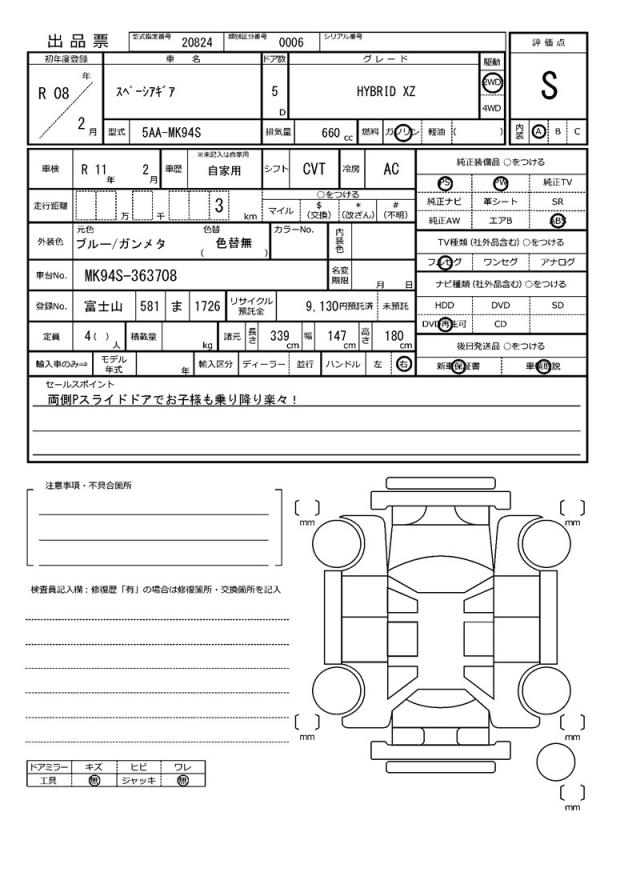 出品票 型式指定番号 20824 類別区分番号 0006 シリアル番号
評価点
S
内装 A B C
初年度登録 車名 ドア数 グレード 駆動
R 08 年 2 月 スペーシアギア 5 D HYBRID XZ 2WD 4WD
型式 5AA-MK94S 排気量 660 cc 燃料 ガソリン 軽油 ( )
車検 R 11 年 2 月 車歴 ※未記入は自家用 自家用 シフト CVT 冷房 AC
走行距離 万 千 3 km ○をつける マイル $(交換) *(改ざん) #(不明)
外装色 元色 ブルー/ガンメタ 色替 ( 色替無 ) カラーNo. 内装色
車台No. MK94S-363708 名変期限 月 日
登録No. 富士山 581 ま 1726 リサイクル預託金 9,130円預託済 未預託
定員 4( ) 人 積載量 kg 諸元 長さ 339 cm 幅 147 cm 高さ 180 cm
輸入車のみ⇒ モデル年式 年 輸入区分 ディーラー 並行 ハンドル 左 右
純正装備品 ○をつける
PS PW 純正TV
純正ナビ 革シート SR
純正AW エアB ABS
TV種類(社外品含む)○をつける
フルセグ ワンセグ アナログ
ナビ種類(社外品含む)○をつける
HDD DVD SD
DVD再生可 CD
後日発送品 ○をつける
新車保証書 車輌取説
セールスポイント
両側Pスライドドアでお子様も乗り降り楽々!
注意事項・不具合箇所
検査員記入欄:修復歴「有」の場合は修復箇所・交換箇所を記入
ドアミラー キズ ヒビ ワレ
工具 無 ジャッキ 無
〔 〕 mm
〔 〕 mm
〔 〕 mm
〔 〕 mm
〔 〕 mm